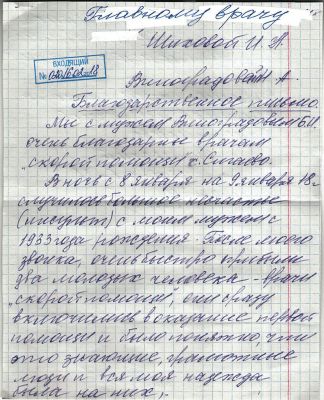 Главному врачу
Шиховой И. А.
ВХОДЯЩИЙ
№
Виноградовой А.
Благодарственное письмо.
Мы с мужем Виноградовым Б.И.
очень благодарны врачам
"скорой помощи"
В ночь с 8 января на 9 января 18г
случилось большое несчастье
(инсульт) с моим мужем с
1933 года рождения. После моего
звонка, очень быстро прибыли
два молодых человека - врачи
"скорой помощи", они сразу
включились в оказание первой
помощи и было понятно, что
это знающие, грамотные
люди и вся моя надежда
была на них,